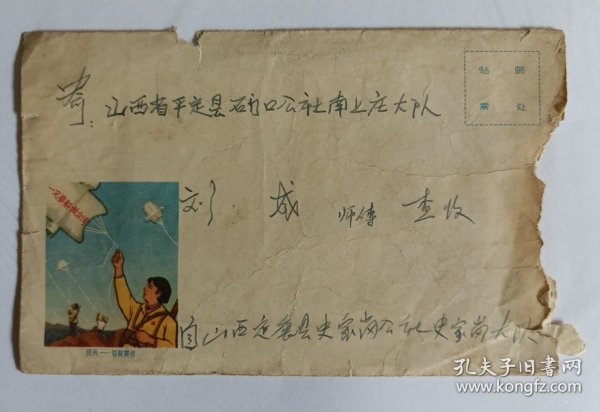 贴邮
票处
寄：山西省平定县石门口公社南上庄大队
刘 成 师傅 查收
一定要解放台湾
自山西定襄县史家岗公社史家岗大队
民兵——对敌宣传
孔夫子旧书网
www.kongfz.com